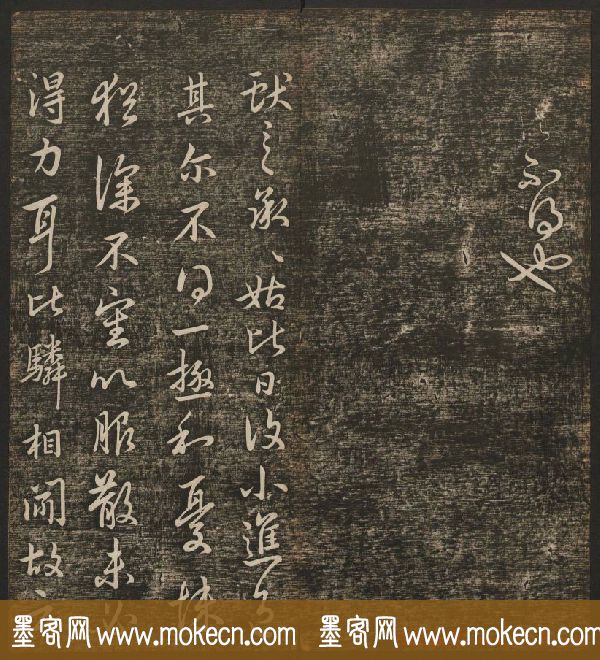 不得也
獻之承姑比日復小進
其尔不得一極和憂悚
猶深不審以服散未
得力耳比驎相聞故
墨客网 www.mokecn.com 墨客网 www.mokecn.com